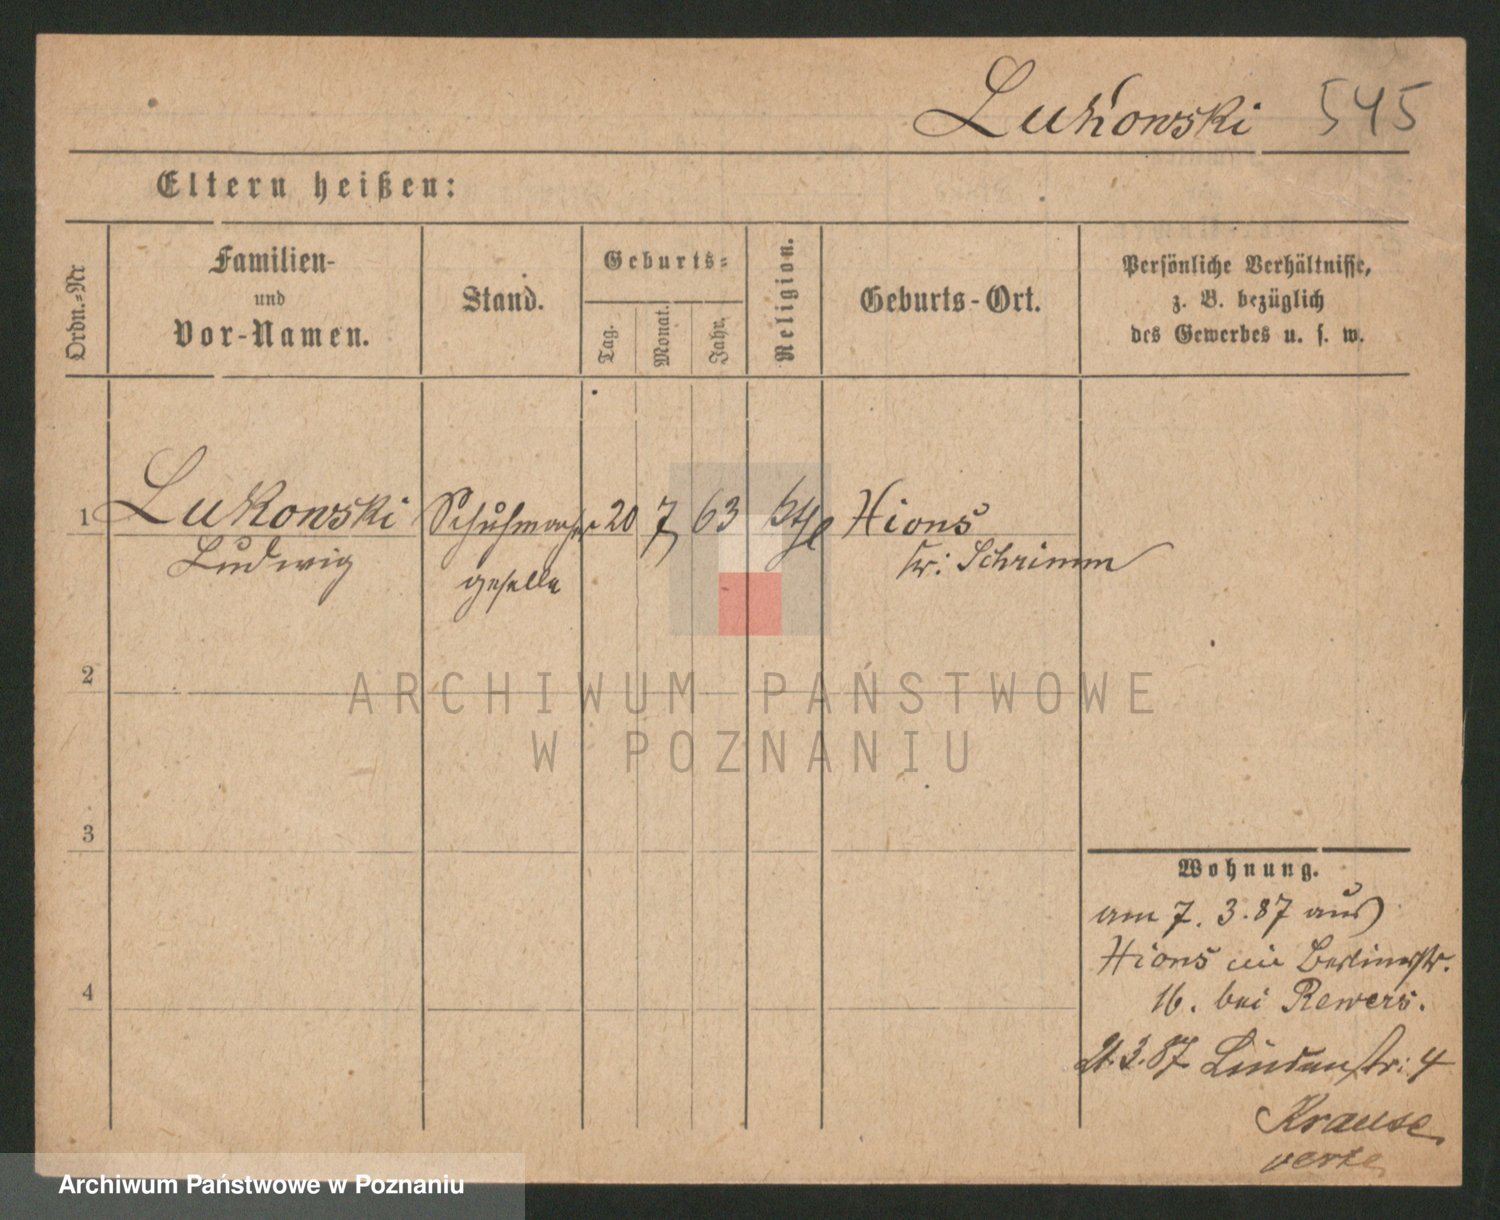 Lukowski 545
Eltern heißen:
Ordn.=Nr
Familien-
und
Vor-Namen.
Stand.
Geburts=
Tag.
Monat.
Jahr.
Religion.
Geburts-Ort.
Persönliche Verhältnisse,
z. B. bezüglich
des Gewerbes u. s. w.
1 Lukowski Schuhmacher 20 7 63 kthl Xions
Ludwig geselle Kr: Schrimm
2
ARCHIWUM PAŃSTWOWE
W POZNANIU
3
4
Wohnung.
am 7. 3. 87 aus
Xions in Berlinerstr.
16. bei Rewers.
21.3.87 Lindenstr: 4
Krause
Archiwum Państwowe w Poznaniu